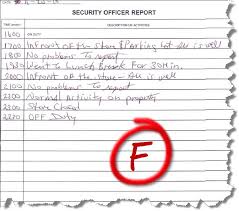 DATE
SECURITY OFFICER REPORT
TIME DESCRIPTION OF ACTIVITIES
1600 ON DUTY
1700 Infront of the Store & Parking Lot All is well
1800 No problems To report
1930 Went To Lunch Break For 30 Min.
2000 Infront of the Store - All is well
2100 No problems To report
2200 Normal Activity on property
2300 Store Closed
2330 OFF Duty
F